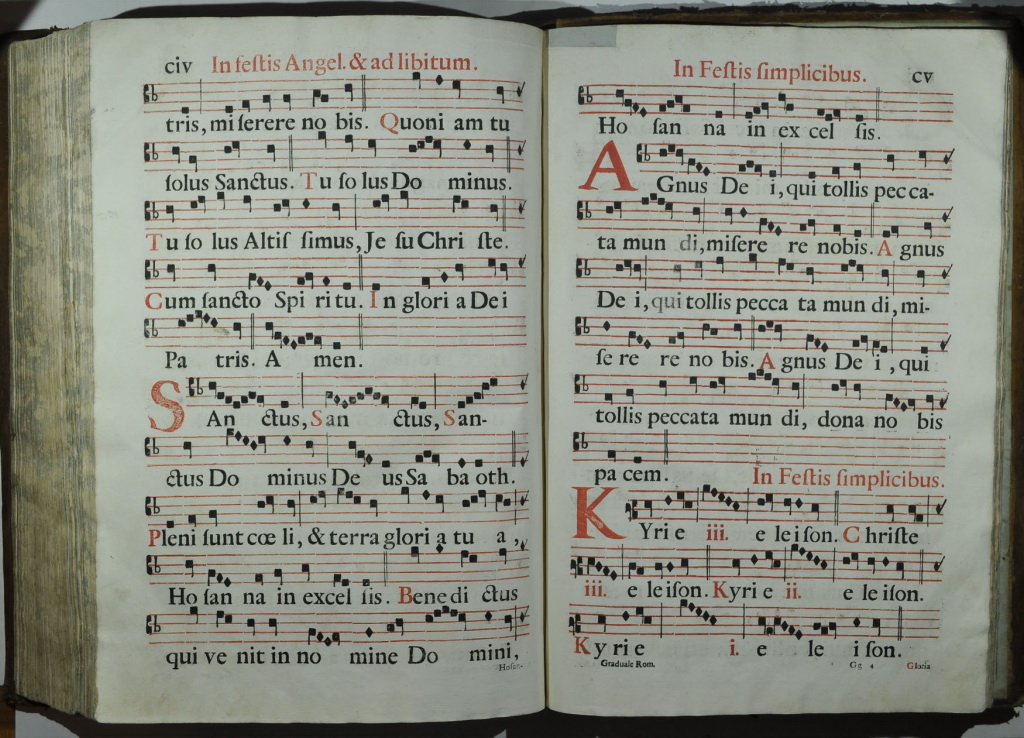 civ In feſtis Angel. & ad libitum.
tris, miſerere no bis. Quoni am tu
ſolus Sanctus. Tu ſo lus Do minus.
Tu ſo lus Altiſ ſimus, Je ſu Chri ſte.
Cum ſancto Spi ri tu. In glori a De i
Pa tris. A men.
SAn ctus, San ctus, San-
ctus Do minus De us Sa ba oth.
Pleni ſunt cœ li, & terra glori a tu a,
Ho ſan na in excel ſis. Bene di ctus
qui ve nit in no mine Do mini,
Hoſan-
In Feſtis ſimplicibus. cv
Ho ſan na in ex cel ſis.
AGnus De i, qui tollis pec ca-
ta mun di, miſere re nobis. A gnus
De i, qui tollis pecca ta mun di, mi-
ſe re re no bis. A gnus De i, qui
tollis peccata mun di, dona no bis
pa cem. In Feſtis ſimplicibus.
KYri e iii. e lei ſon. C hriſte
iii. e leiſon. Kyri e ii. e le iſon.
Ky ri e i. e le i ſon.
Graduale Rom. Gg 4 Gloria